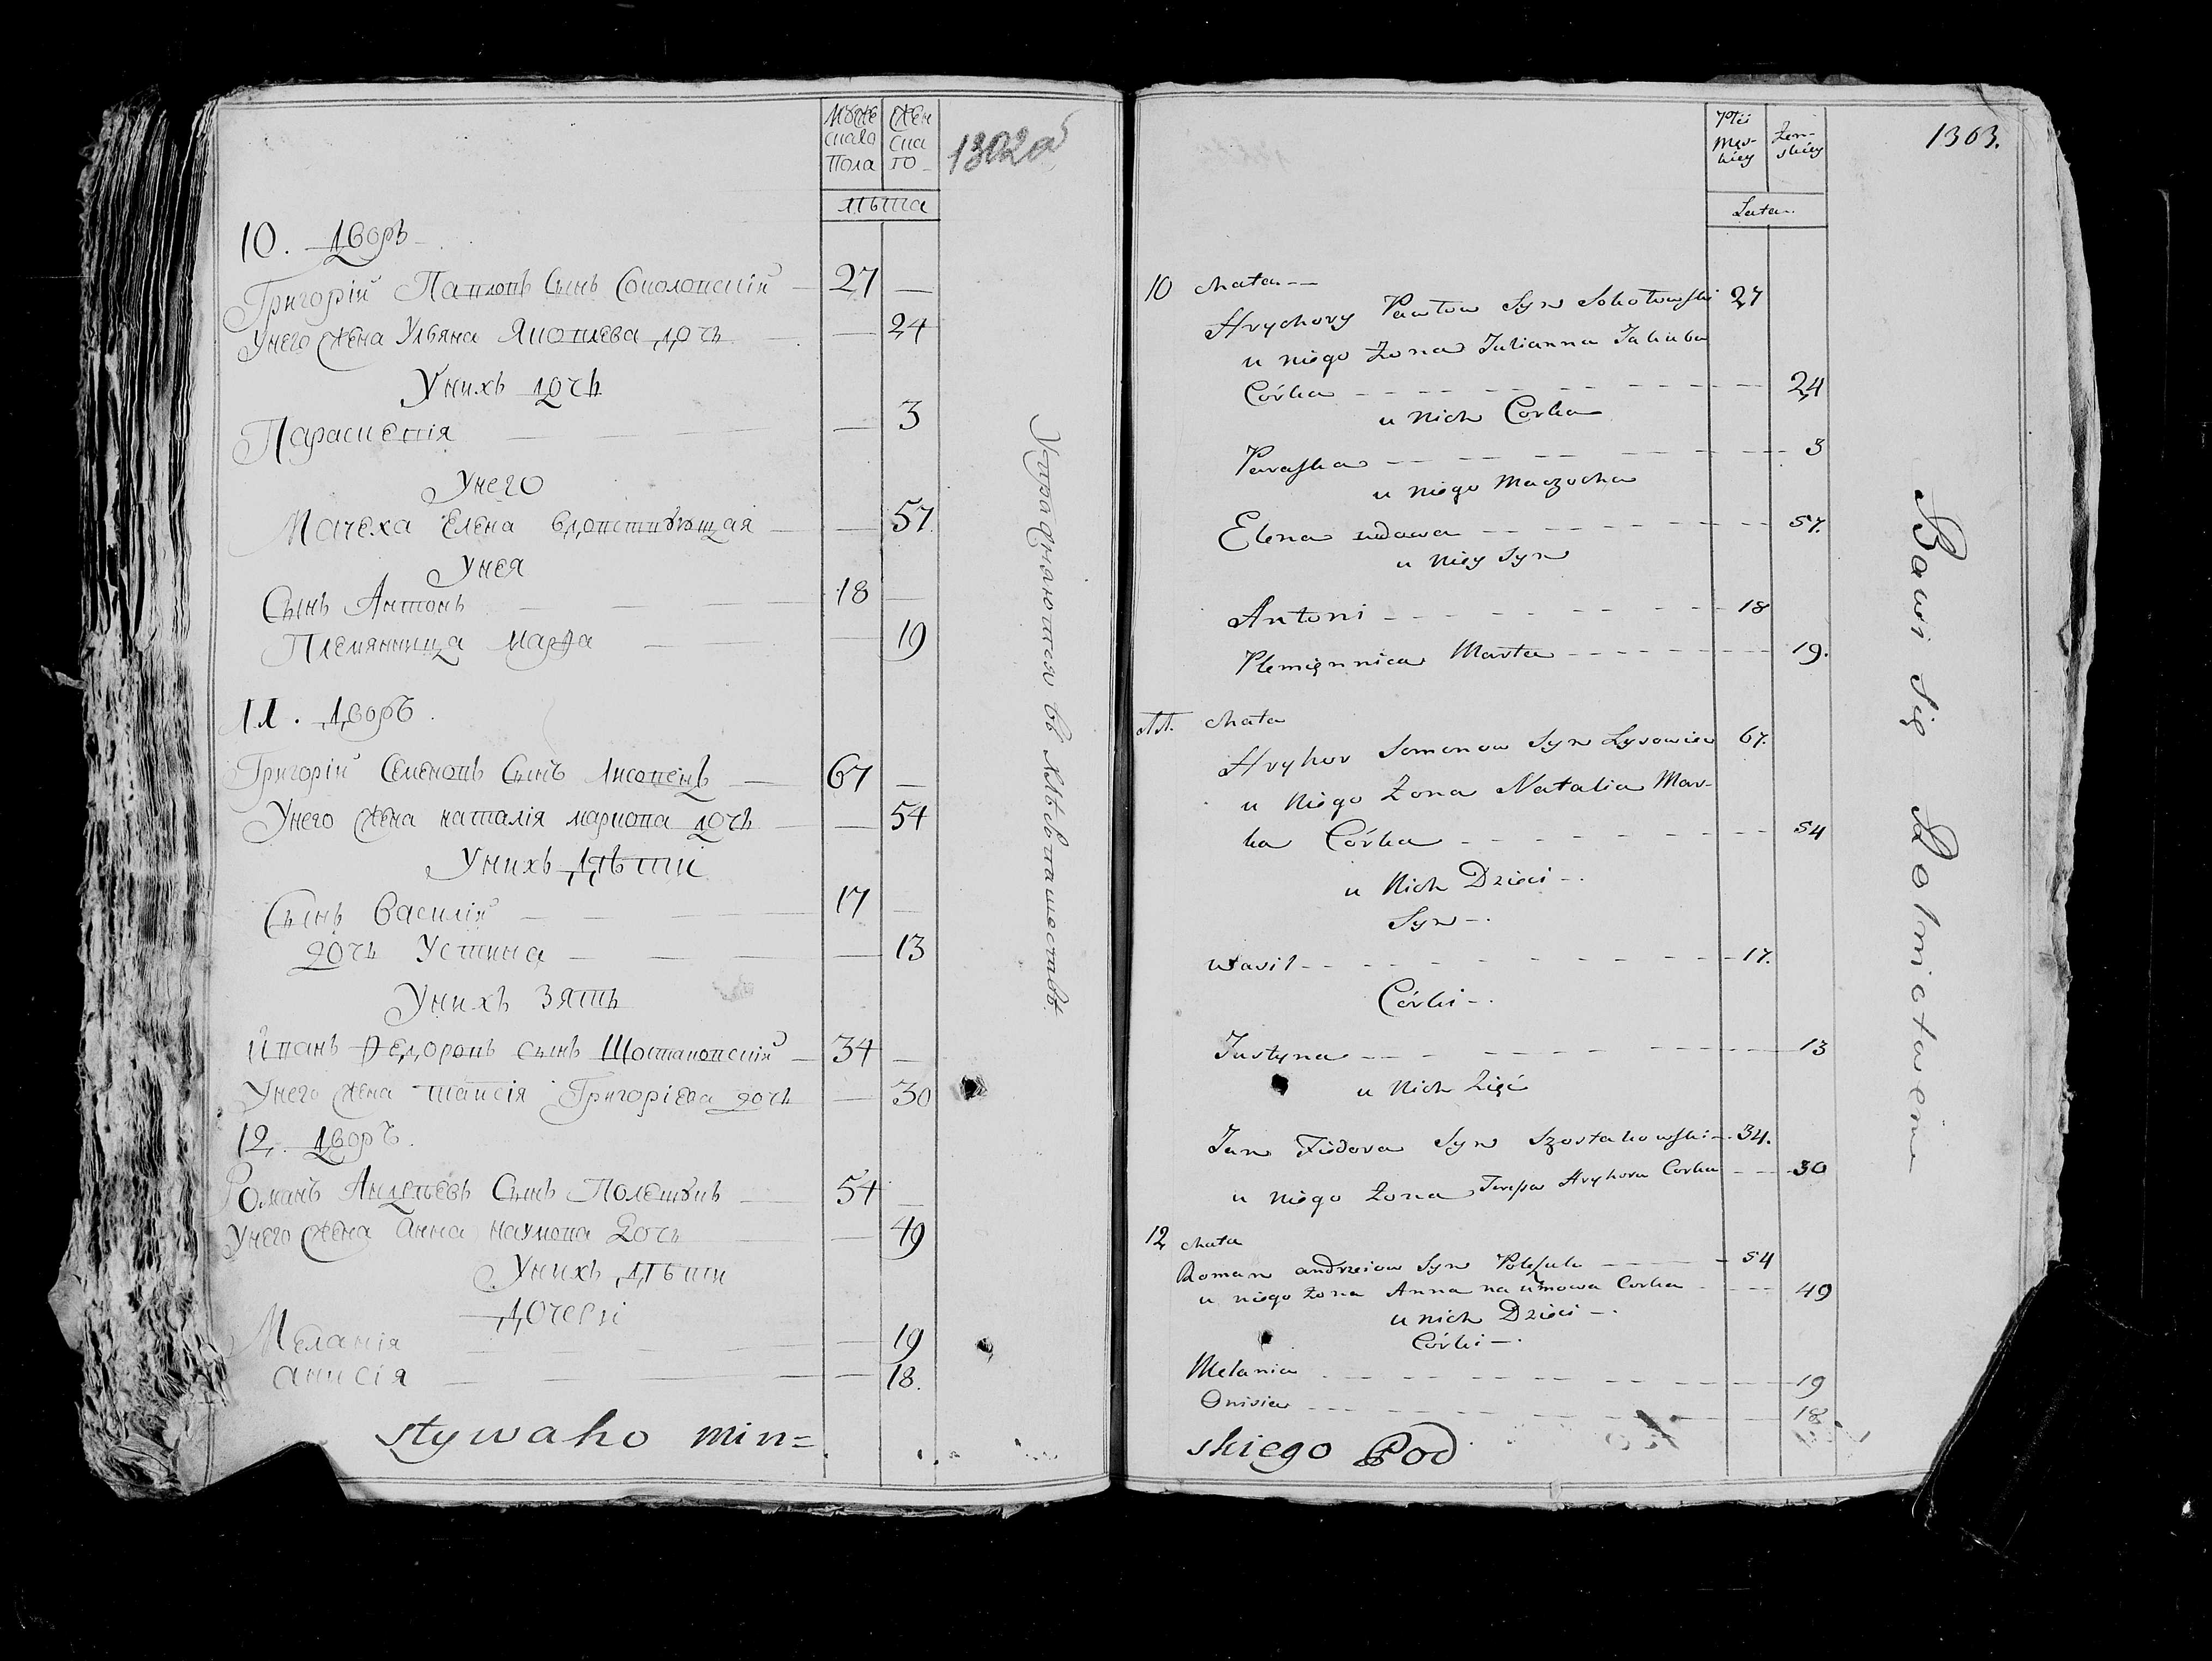 Мужескаго Пола
Женскаго
лѣта
1302об
10. Дворъ
Григорій Павловъ Сынъ Соколовскій — 27 —
Унего жена Ульяна Яковлева дочь — 24
Унихъ дочь
Параскевія — 3
Унего
Мачеха Елена вдовствующая — 57
Унея
Сынъ Антонъ — 18 —
Племянница Марѳа — 19
11. Дворъ
Григорій Семеновъ Сынъ Лисовецъ — 67 —
Унего жена наталія маркова дочь — 54
Унихъ дѣти
Сынъ Василій — 17 —
дочь Устина — 13
Унихъ Зять
Иванъ Ѳедоровъ сынъ Шостаковскій — 34 —
Унего жена таисія Григоріева дочь — 30
12. Дворъ
Романъ Андреевъ Сынъ Полешукъ — 54 —
Унего жена анна наумова дочь — 49
Унихъ дѣти
дочери
Меланія — 19
анисія — 18.
Упражняются въ хлѣбопашествѣ.
stywaho min=
Płci Męskiey
Żenskiey
Lata
1303.
10 chata
Hryhory Pawłow Syn Sokołowski 27
u niego Żona Julianna Jakuba
Córka 24
u nich Corka
Paraska 3
u niego Maczocha
Elena wdowa 57.
u niey Syn
Antoni 18
Plemięnnica Marta 19.
11. chata
Hryhor Semenow Syn Lysowiec 67.
u Niego Żona Natalia Mar-
ka Córka 54
u Nich Dzieci
Syn
Wasil 17.
Córki
Justyna 13
u Nich Zięć
Jan Fiedora Syn Szostakowski 34.
u niego Żona Hryhora Corka 30
12 chata
Roman andrzeiow Syn Poleszuk 54
u niego żona Anna naumowa Corka 49
u nich Dzieci
Córki
Melania 19
Onisia 18
skiego Pod
Bawi Się Rolnictwem